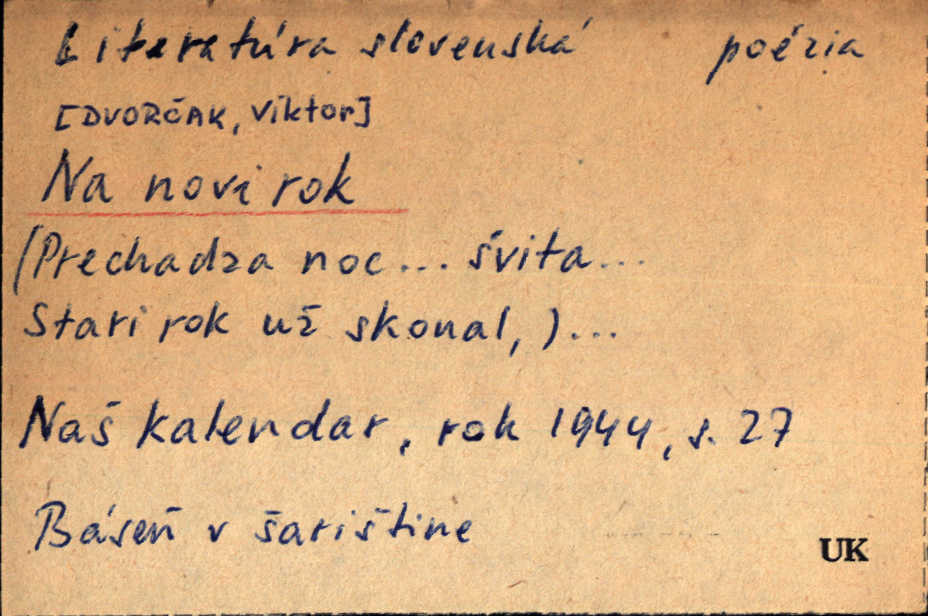 Literatúra slovenská poézia
[DVORČAK, Viktor]
Na novi rok
(Prechadza noc... švita...
Stari rok už skonal,)...
Naš kalendar, rok 1944, s. 27
Báseň v šarištine
UK